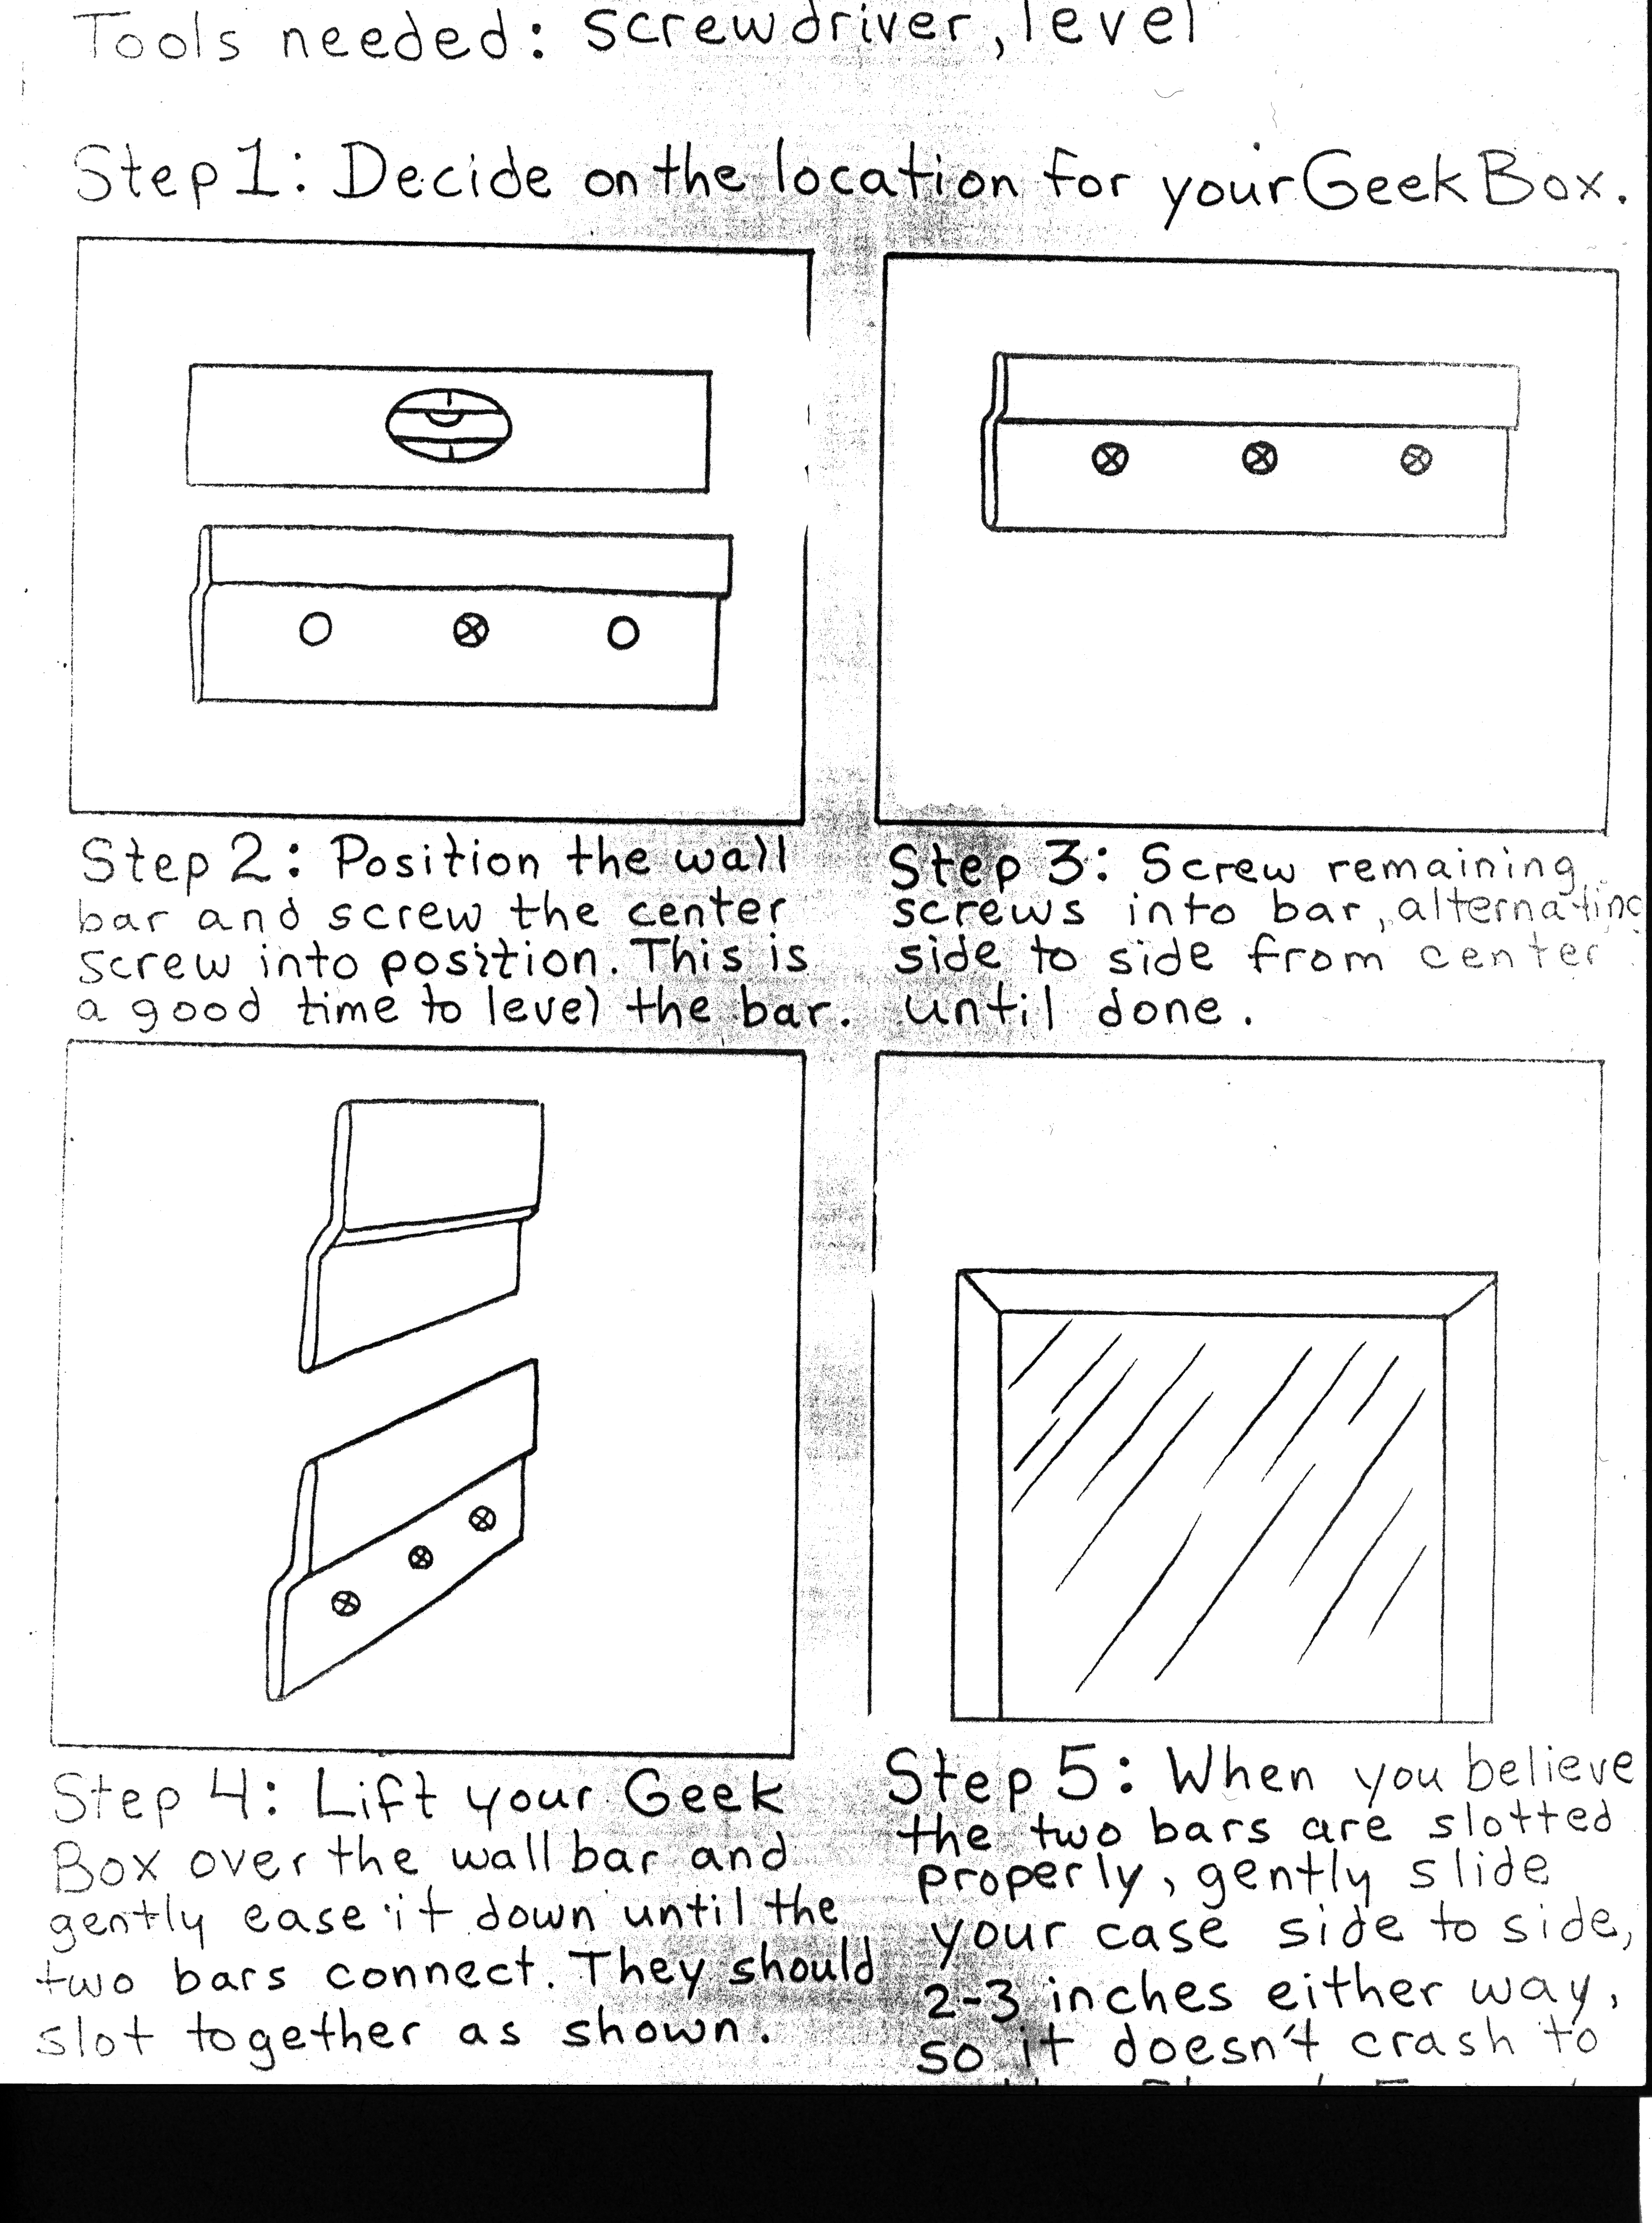 Tools needed: screwdriver, level
Step 1: Decide on the location for your Geek Box.
Step 2: Position the wall
bar and screw the center
screw into position. This is
a good time to level the bar.
Step 3: Screw remaining
screws into bar, alternating
side to side from center
until done.
Step 4: Lift your Geek
Box over the wall bar and
gently ease it down until the
two bars connect. They should
slot together as shown.
Step 5: When you believe
the two bars are slotted
properly, gently slide
your case side to side,
2-3 inches either way,
so it doesn't crash to